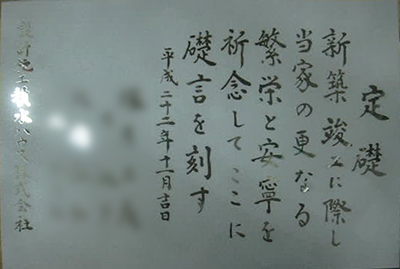 定礎
新築竣工に際し
当家の更なる
繁栄と安寧を
祈念してここに
礎言を刻す
平成二十二年十一月吉日
設計施工 積水ハウス株式会社